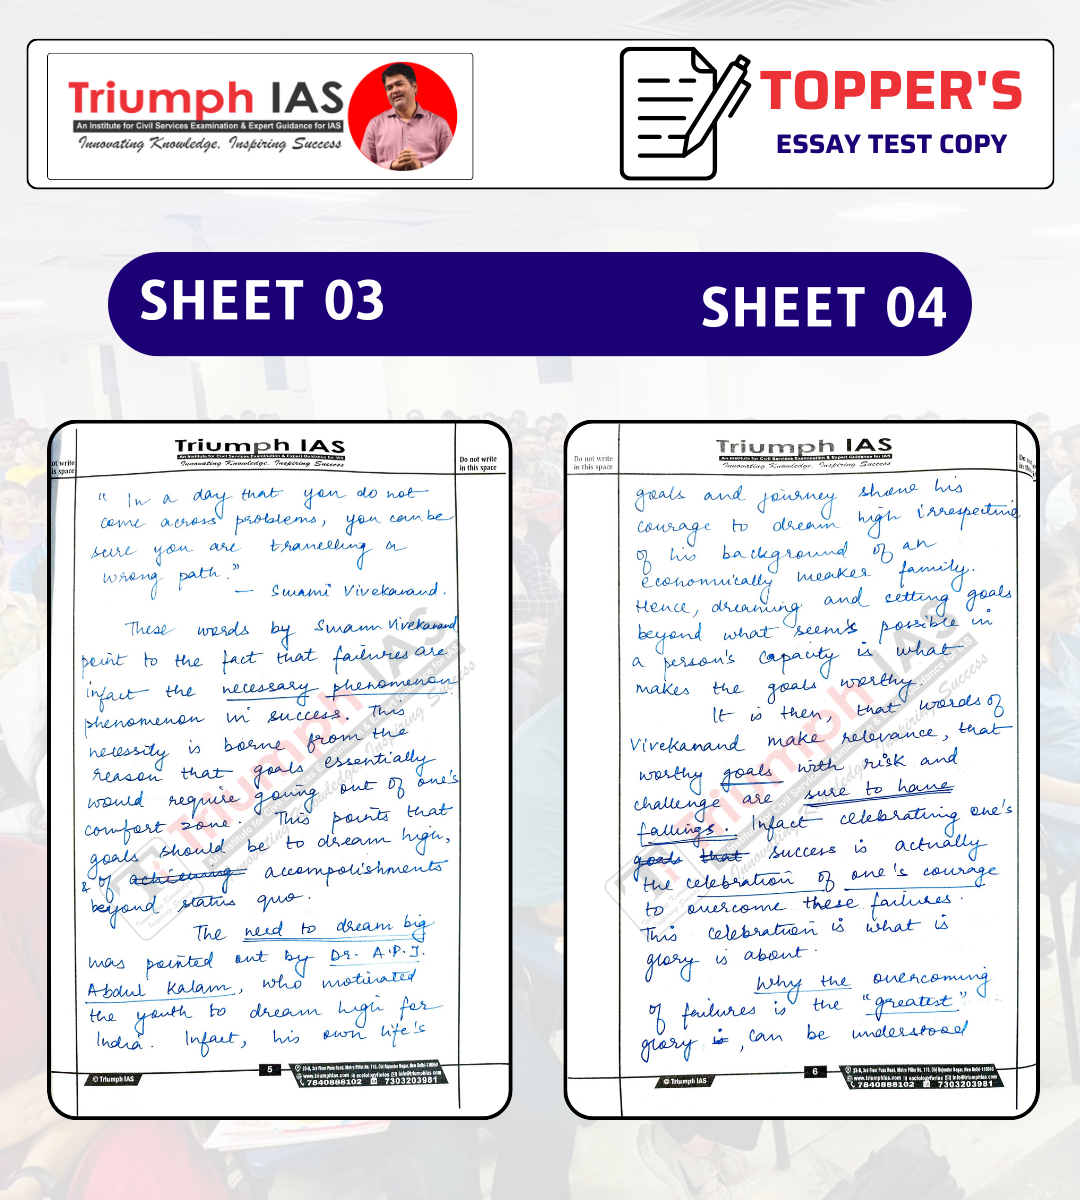 Triumph IAS
An Institute for Civil Services Examination & Expert Guidance for IAS
Innovating Knowledge, Inspiring Success
TOPPER'S
ESSAY TEST COPY
SHEET 03
SHEET 04
Triumph IAS
An Institute for Civil Services Examination & Expert Guidance for IAS
Innovating Knowledge, Inspiring Success
ot write
is space
Do not write
in this space
" In a day that you do not
come across problems, you can be
sure you are travelling a
wrong path."
— Swami Vivekanand.
These words by Swami Vivekanand
point to the fact that failures are
infact the necessary phenomenon
phenomenon in success. This
necessity is borne from the
reason that goals essentially
would require going out of one's
comfort zone. This points that
goals should be to dream high,
& of achieving accomplishments
beyond status quo.
The need to dream big
was pointed out by Dr. A.P.J.
Abdul Kalam, who motivated
the youth to dream high for
India. Infact, his own life's
© Triumph IAS
5
23-B, 3rd Floor Pusa Road, Metro Pillar No. 115, Old Rajender Nagar, New Delhi-110060
www.triumphias.com sociologyforias info@triumphias.com
7840888102 7303203981
Triumph IAS
An Institute for Civil Services Examination & Expert Guidance for IAS
Innovating Knowledge, Inspiring Success
Do not write
in this space
Do no
in th
goals and journey shone his
courage to dream high irrespective
of his background of an
economically weaker family.
Hence, dreaming and setting goals
beyond what seems possible in
a person's capacity is what
makes the goals worthy.
It is then, that words of
Vivekanand make relevance, that
worthy goals with risk and
challenge are sure to have
fallings. Infact celebrating one's
goals that success is actually
the celebration of one's courage
to overcome these failures.
This celebration is what is
glory is about.
Why the overcoming
of failures is the "greatest"
glory is, can be understood
© Triumph IAS
6
23-B, 3rd Floor Pusa Road, Metro Pillar No. 115, Old Rajender Nagar, New Delhi-110060
www.triumphias.com sociologyforias info@triumphias.com
7840888102 7303203981